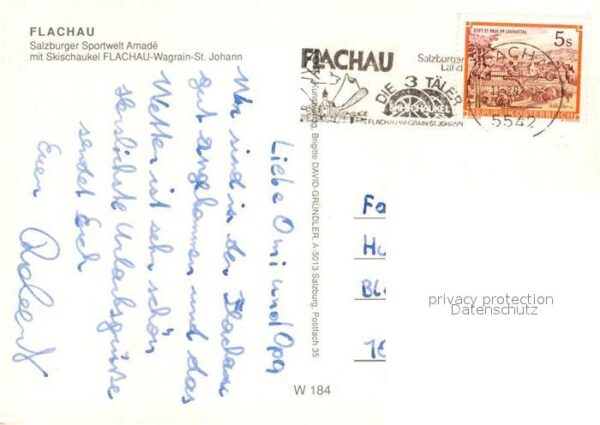 FLACHAU
Salzburger Sportwelt Amadé
mit Skischaukel FLACHAU-Wagrain-St. Johann
Liebe Omi und Opa
Wir sind in der Flachau
gut angekommen und das
Wetter ist sehr schön
Herzlichste Urlaubsgrüße
sendet Euch
Euer
Kunstverlag, Brigitte DAVID-GRÜNDLER, A-5013 Salzburg, Postfach 35
W 184
FLACHAU
Salzburger
Land
DIE 3 TÄLER
SCHAUKEL
FLACHAU-WAGRAIN-ST.JOHANN
STIFT ST. PAUL IM LAVANTTAL
5s
REPUBLIK ÖSTERREICH
FLACHAU
5542
Fa
Ha
Bl
privacy protection
Datenschutz